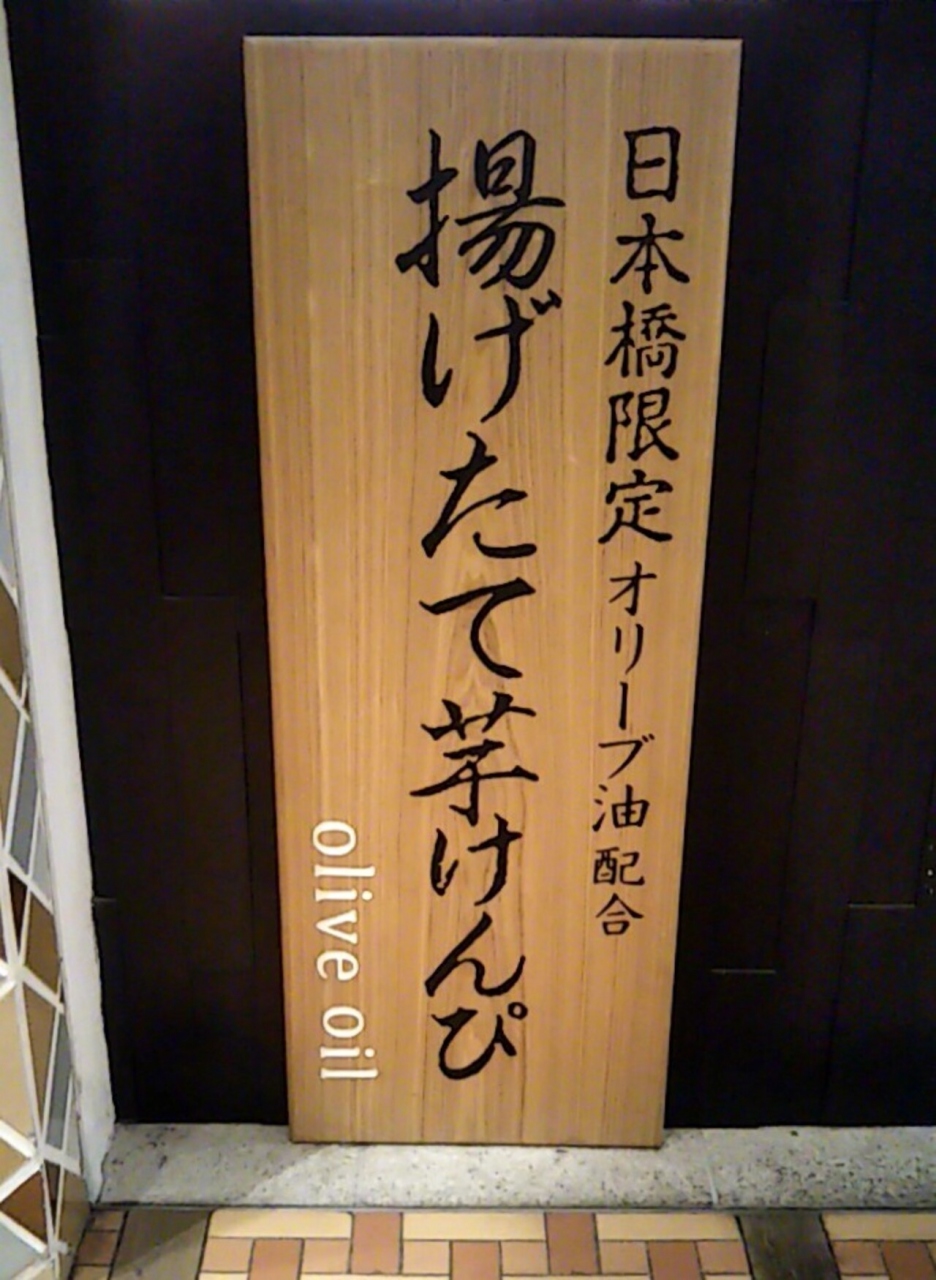 日本橋限定オリーブ油配合
揚げたて芋けんぴ
olive oil